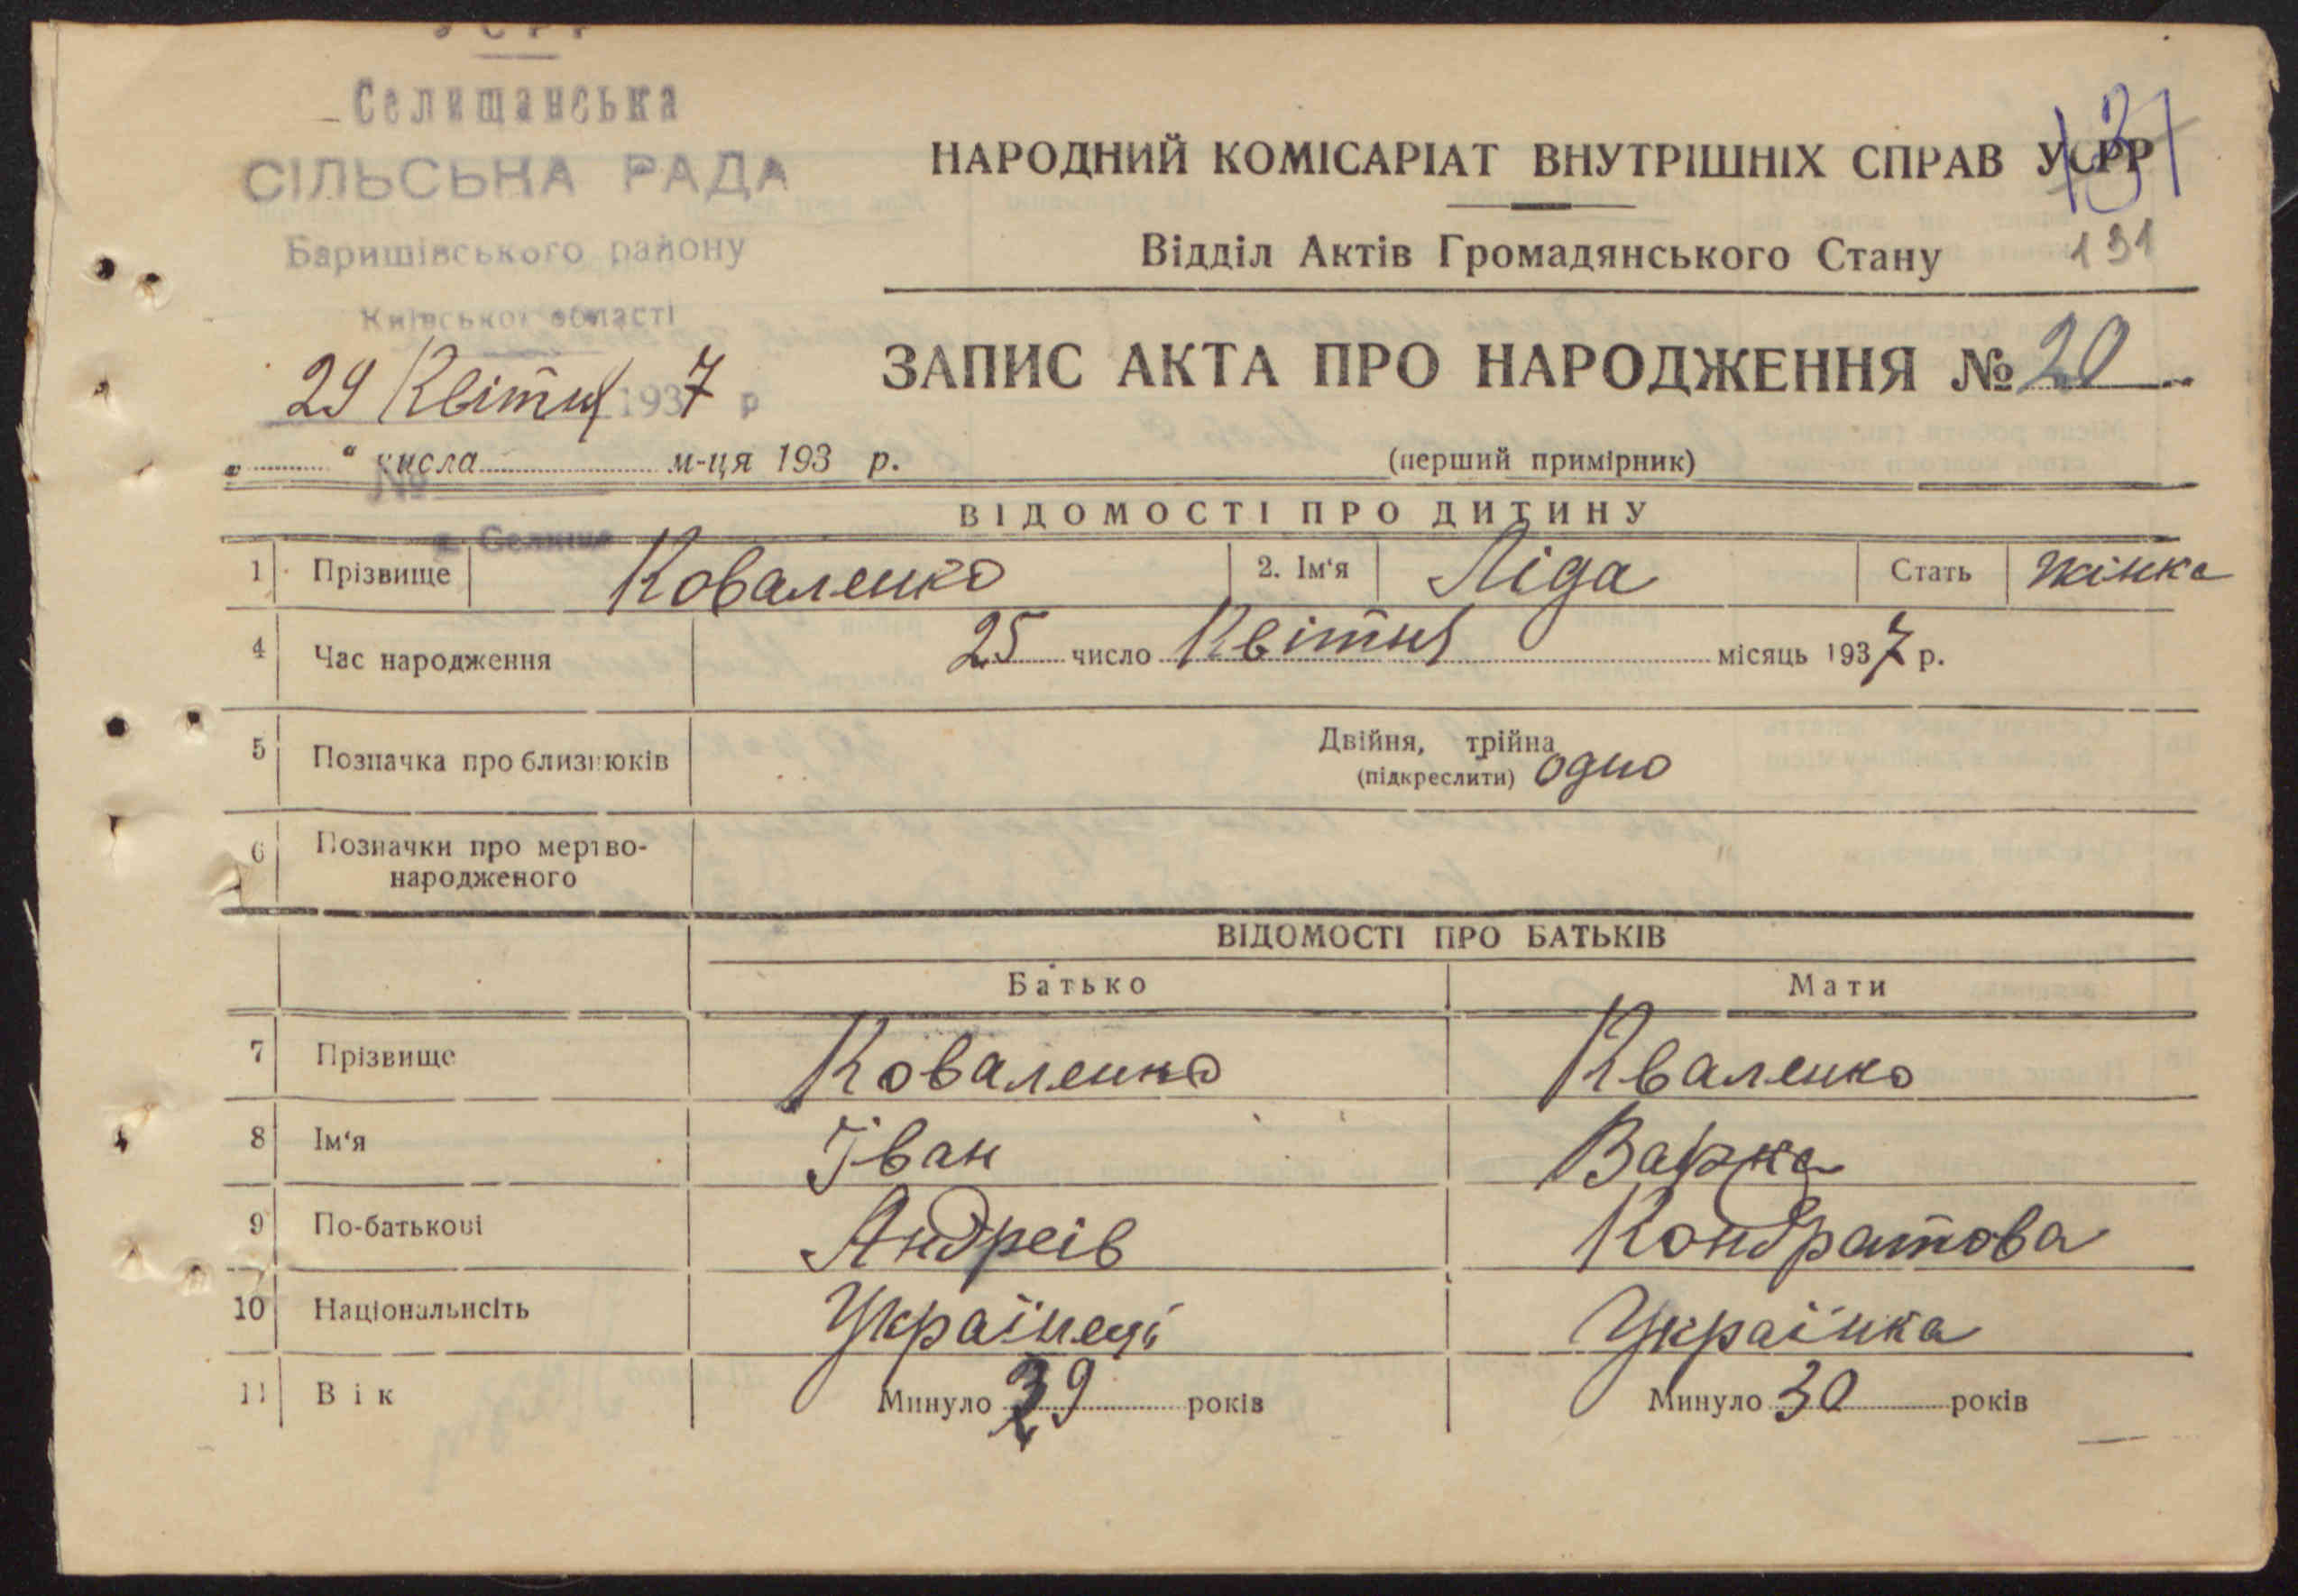 УСРР
Селищанська
СІЛЬСЬКА РАДА
Баришівського району
Київської області
29 Квітня 1937 р
№
с. Селище
131
НАРОДНИЙ КОМІСАРІАТ ВНУТРІШНІХ СПРАВ УСРР
Відділ Актів Громадянського Стану
131
ЗАПИС АКТА ПРО НАРОДЖЕННЯ № 20
„ “ числа м-ця 193 р.
(перший примірник)
ВІДОМОСТІ ПРО ДИТИНУ
1 Прізвище Коваленко 2. Ім‘я Ліда Стать жінка
4 Час народження 25 число Квітня місяць 1937 р.
5 Позначка про близнюків Двійня, трійня
(підкреслити) одно
6 Позначки про мертво-
народженого
ВІДОМОСТІ ПРО БАТЬКІВ
Батько Мати
7 Прізвище Коваленко Кваленко
8 Ім‘я Іван Варка
9 По-батькові Андреів Кондратова
10 Національнсіть Українець Українка
11 Вік Минуло 39 років Минуло 30 років